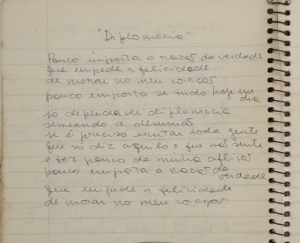 "Diplomacia"
Pouco importa a razão da verdade
que impede a felicidade
de morar no meu coração
pouco importa se tudo hoje em dia
só depende de diplomacia
semeando a desunião
se é preciso evitar toda gente
que só diz aquilo que não sente
e faz pouco da minha aflição
pouco importa a razão da verdade
que impede a felicidade
de morar no meu coração